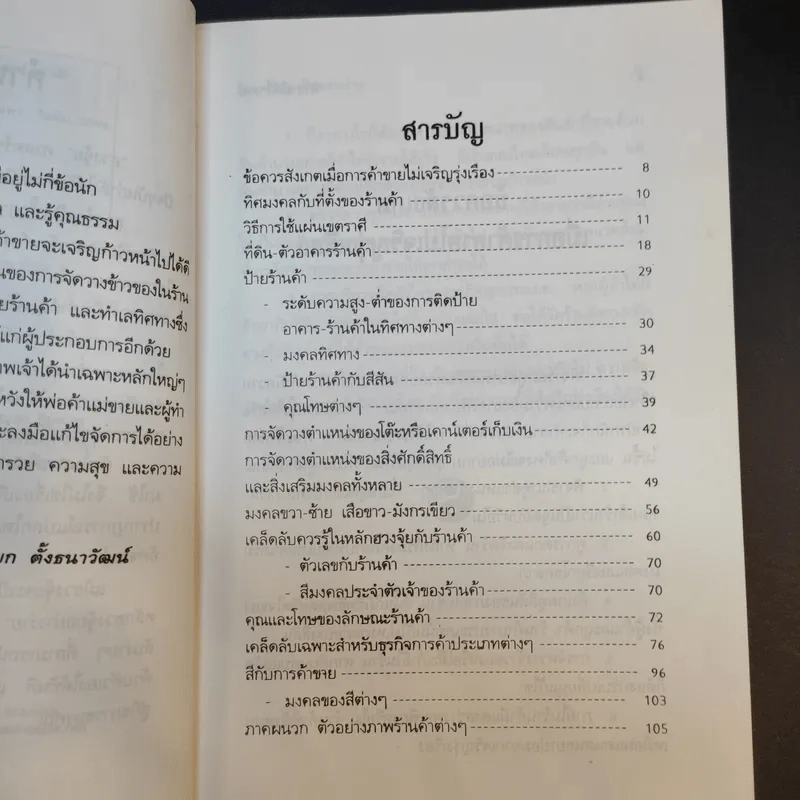 ีอยู่ไม่กี่ข้อนัก
และรู้คุณธรรม
ค้าขายจะเจริญก้าวหน้าไปได้ดี
นของการจัดวางข้าวของในร้าน
ยร้านค้า และทำเลทิศทางซึ่ง
แก่ผู้ประกอบการอีกด้วย
พเจ้าได้นำเฉพาะหลักใหญ่ๆ
หวังให้พ่อค้าแม่ขายและผู้ทำ
ะลงมือแก้ไขจัดการได้อย่าง
ำรวย ความสุข และความ
ตั้งธนาวัฒน์
สารบัญ
ข้อควรสังเกตเมื่อการค้าขายไม่เจริญรุ่งเรือง 8
ทิศมงคลกับที่ตั้งของร้านค้า 10
วิธีการใช้แผ่นเขตราศี 11
ที่ดิน-ตัวอาคารร้านค้า 18
ป้ายร้านค้า 29
- ระดับความสูง-ต่ำของการติดป้าย
อาคาร-ร้านค้าในทิศทางต่างๆ 30
- มงคลทิศทาง 34
- ป้ายร้านค้ากับสีสัน 37
- คุณโทษต่างๆ 39
การจัดวางตำแหน่งของโต๊ะหรือเคาน์เตอร์เก็บเงิน 42
การจัดวางตำแหน่งของสิ่งศักดิ์สิทธิ์
และสิ่งเสริมมงคลทั้งหลาย 49
มงคลขวา-ซ้าย เสือขาว-มังกรเขียว 56
เคล็ดลับควรรู้ในหลักฮวงจุ้ยกับร้านค้า 60
- ตัวเลขกับร้านค้า 70
- สีมงคลประจำตัวเจ้าของร้านค้า 70
คุณและโทษของลักษณะร้านค้า 72
เคล็ดลับเฉพาะสำหรับธุรกิจการค้าประเภทต่างๆ 76
สีกับการค้าขาย 96
- มงคลของสีต่างๆ 103
ภาคผนวก ตัวอย่างภาพร้านค้าต่างๆ 105